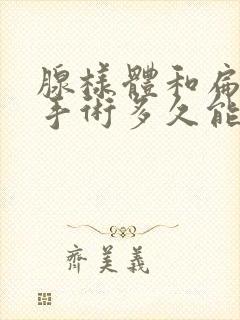 腺樣體和扁
手術多久能
齊美義